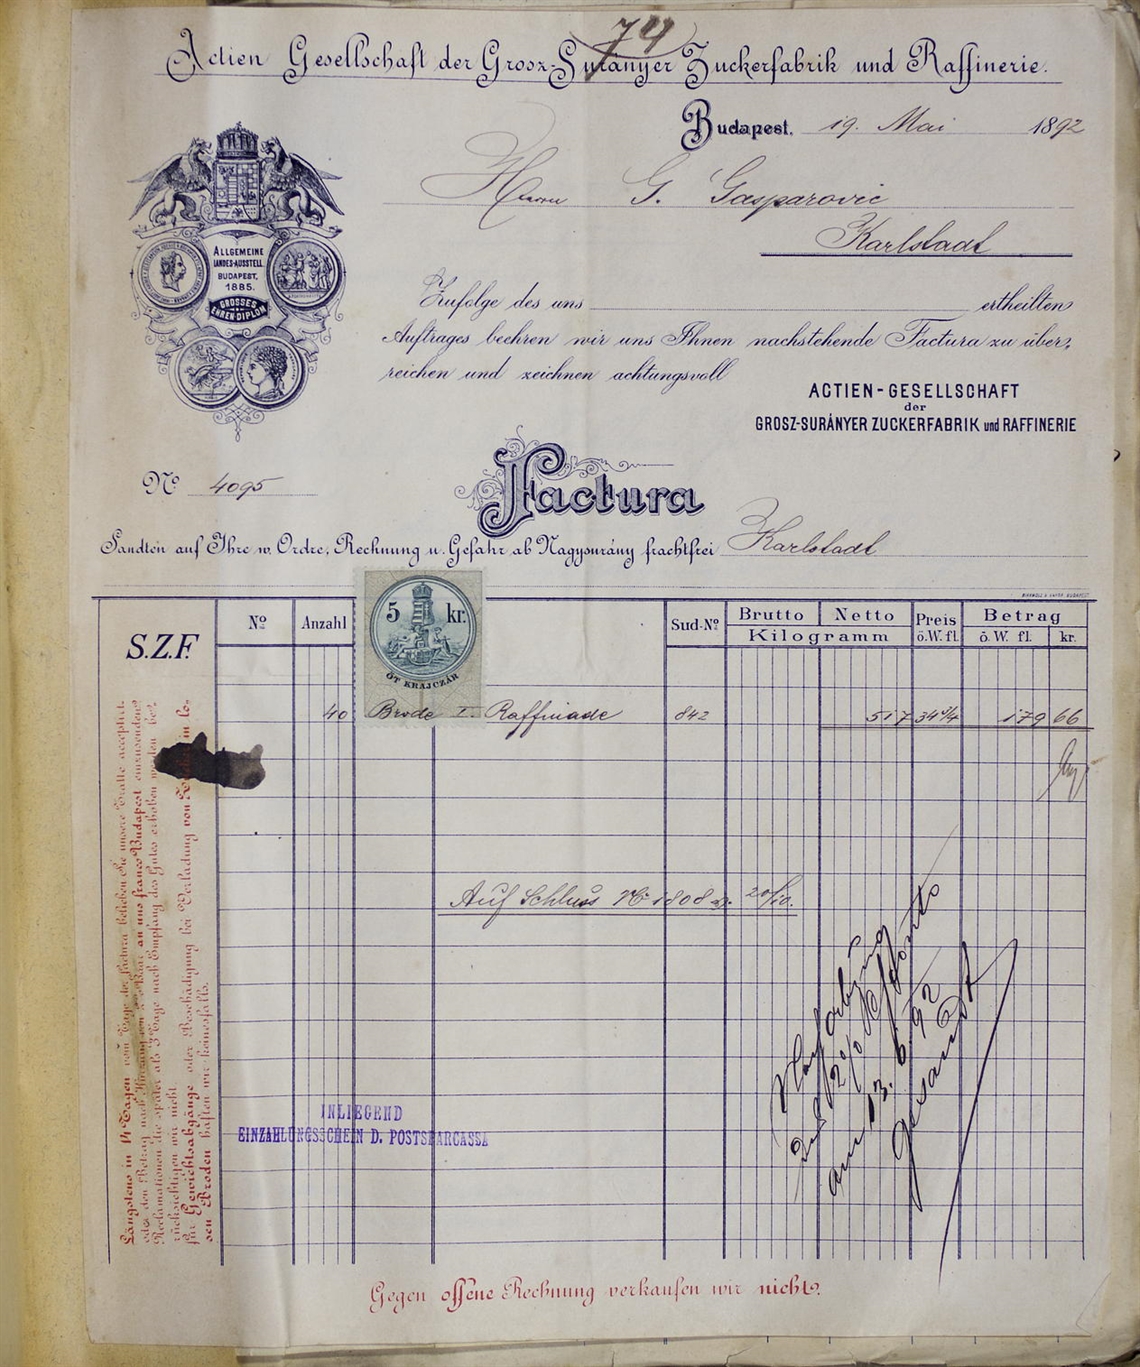 74
Actien Gesellschaft der Grosz-Surányer Zuckerfabrik und Raffinerie.
Budapest, 19. Mai 1892
Herrn G. Gasparovic
Karlstadt
ALLGEMEINE
LANDES-AUSSTELL.
BUDAPEST,
1885.
GROSSES
EHREN-DIPLOM
Zufolge des uns ertheilten
Auftrages beehren wir uns Ihnen nachstehende Factura zu über-
reichen und zeichnen achtungsvoll
ACTIEN-GESELLSCHAFT
der
GROSZ-SURÁNYER ZUCKERFABRIK und RAFFINERIE
No 4095
Factura
Sandten auf Ihre w. Ordre, Rechnung u. Gefahr ab Nagysurány frachtfrei Karlstadt
S.Z.F.
No Anzahl Sud-No Brutto Netto Preis Betrag
Kilogramm ö.W.fl. ö.W. fl. kr.
5 kr.
ÖT KRAJCZÁR
40 Brode I. Raffinade 842 517 34 3/4 179 66
Auf Schluss No 1808 20/10.
2%
am 13. 6. 92
gesandt
INLIEGEND
EINZAHLUNGSSCHEIN D. POSTSPARCASSA
Längstens in 14 Tagen vom Tage der Factura belieben Sie unsere Tratte acceptirt
oder den Betrag nach Abzug von 2% Baar an uns franco Budapest einzusenden.
Reclamationen die später als 3 Tage nach Empfang des Gutes erhoben werden be-
rücksichtigen wir nicht.
für Gewichtsabgänge oder Beschädigung bei Verladung von in lo-
sen Broden haften wir keinesfalls.
Gegen offene Rechnung verkaufen wir nicht.